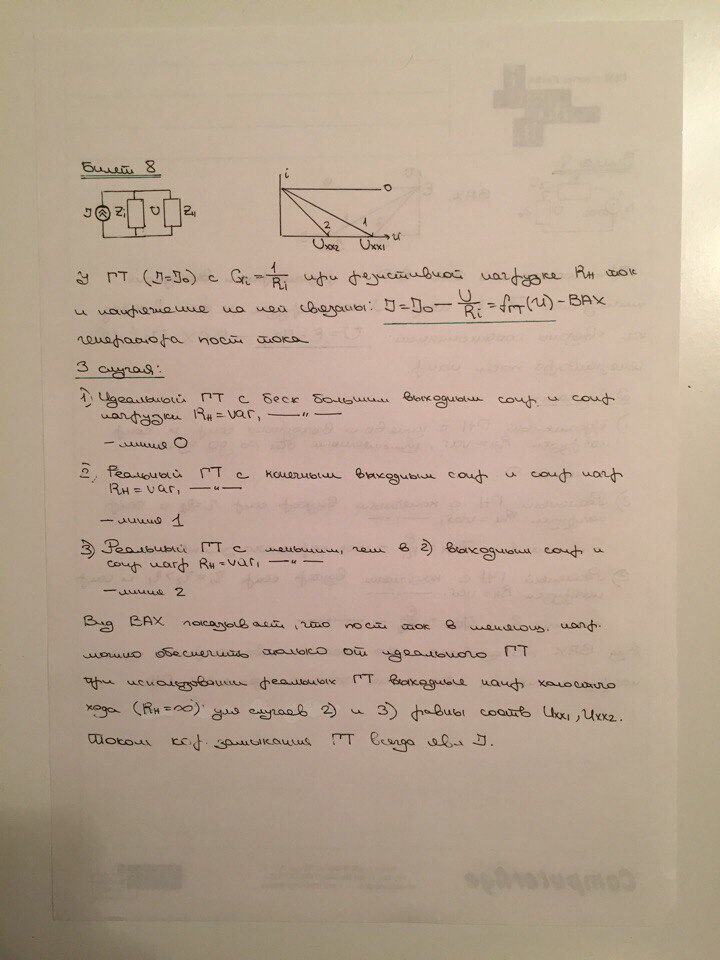 Билет 8
J Zi U Zн
i 0 2 1 Uxx2 Uxx1 u
У ГТ (J=J₀) с Gi = 1/Ri при резистивной нагрузке Rн ток
и напряжение на ней связаны: J=J₀ – U/Ri = fГТ(u) – ВАХ
генератора пост тока
3 случая:
1) Идеальный ГТ с беск большим выходным сопр и сопр
нагрузки Rн = var, —〃—
– линия 0
2) Реальный ГТ с конечным выходным сопр и сопр нагр
Rн = var, —〃—
– линия 1
3) Реальный ГТ с меньшим, чем в 2) выходным сопр и
сопр нагр Rн = var, —〃—
– линия 2
Вид ВАХ показывает, что пост ток в меняющ. нагр.
можно обеспечить только от идеального ГТ
при использовании реальных ГТ выходные напр холостого
хода (Rн = ∞) для случаев 2) и 3) равны соотв Uxx1, Uxx2.
Током кор. замыкания ГТ всегда явл J.
ComputerAge